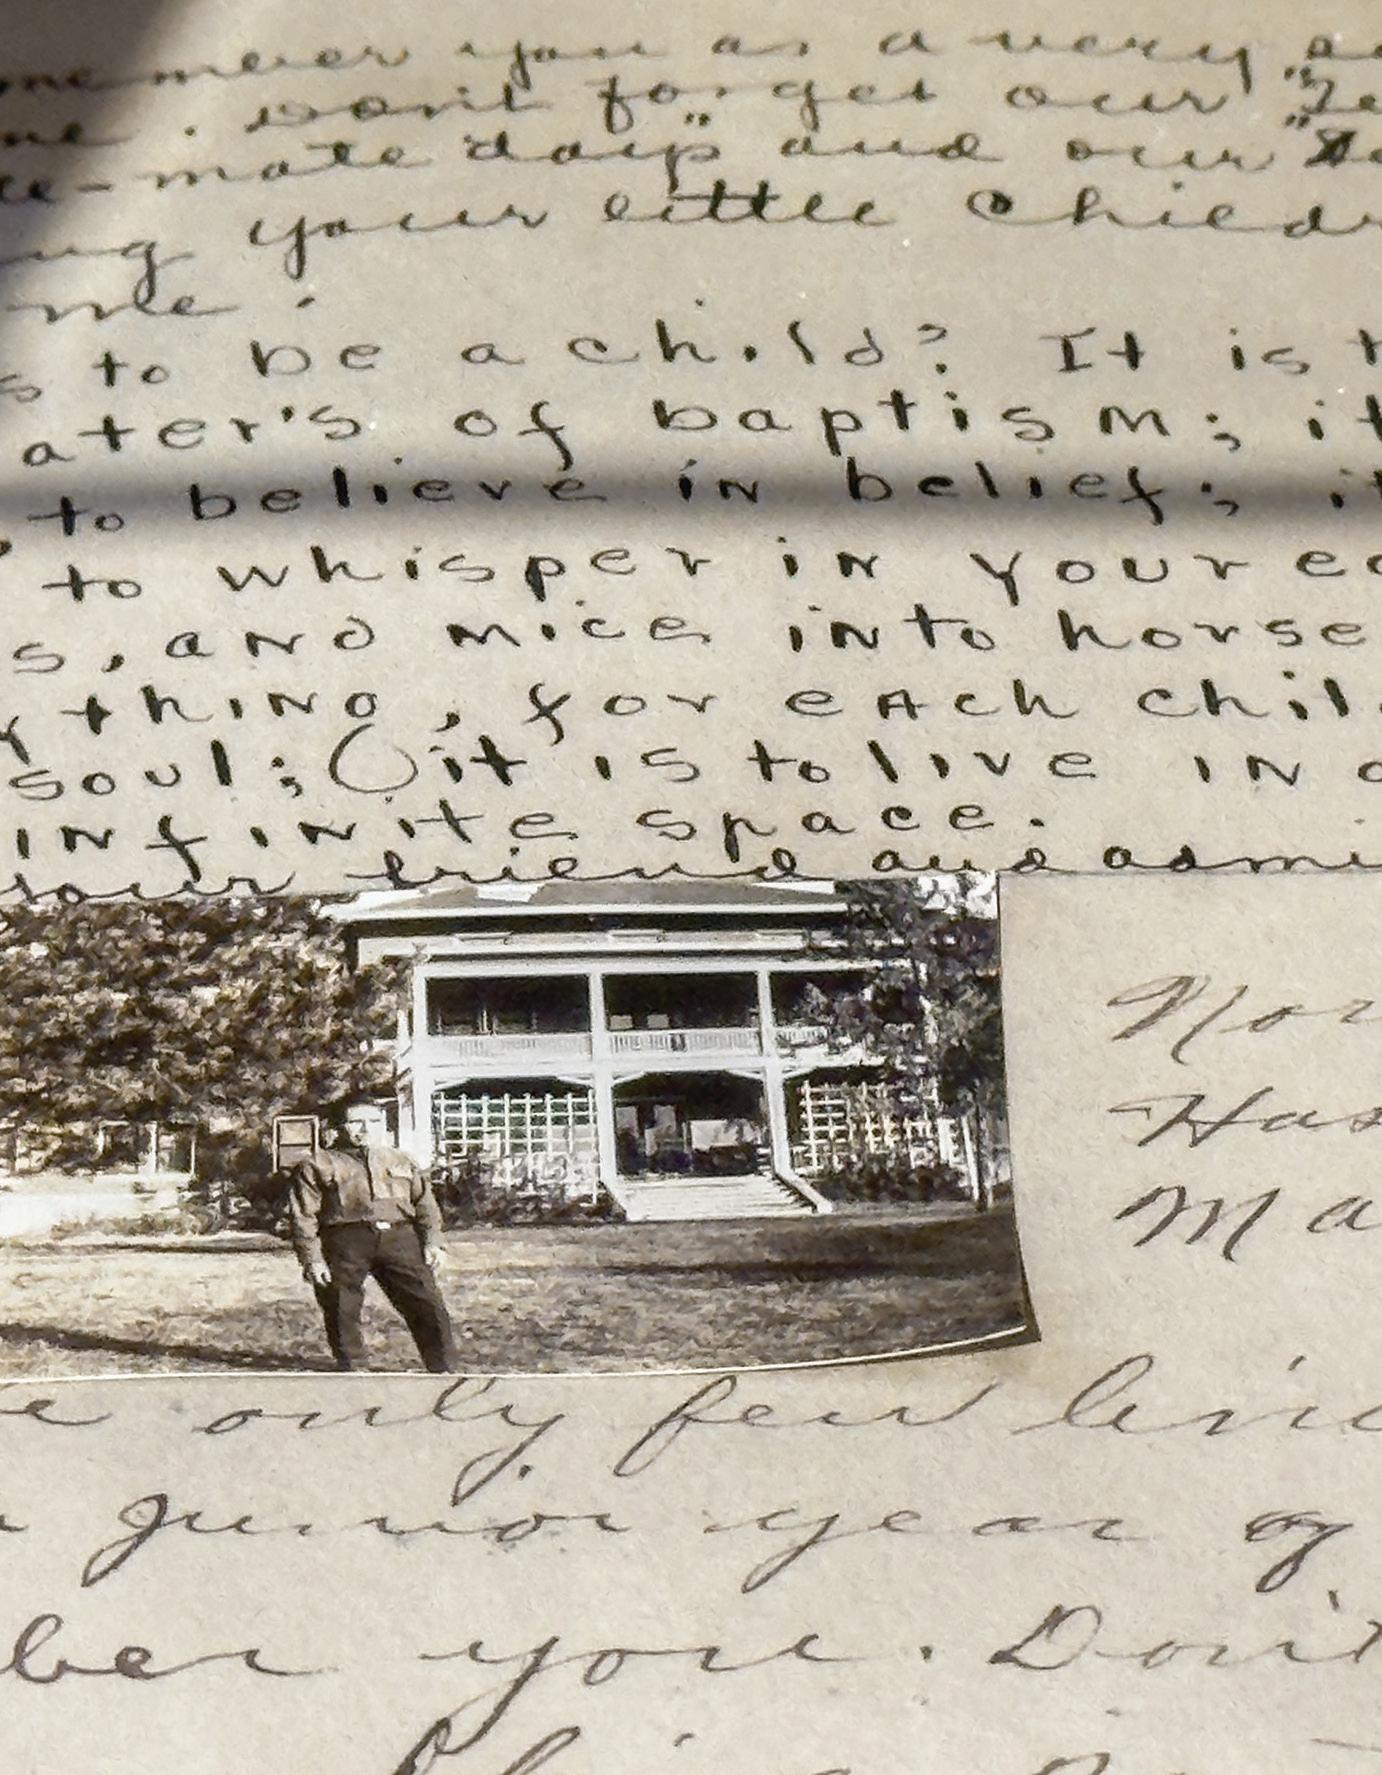 member you as a very
me. Dont forget our
-mate "day" and our
ing your little Child
me.
s to be a child? It is t
ater's of baptism; it
to believe in belief; it
to whisper in your ea
s, and mice into horse
ything, for each chil
soul; it is to live in a
infinite space.
your friend and admi
Nor
Has
Ma
e only few line
junior year of
ber you. Don't